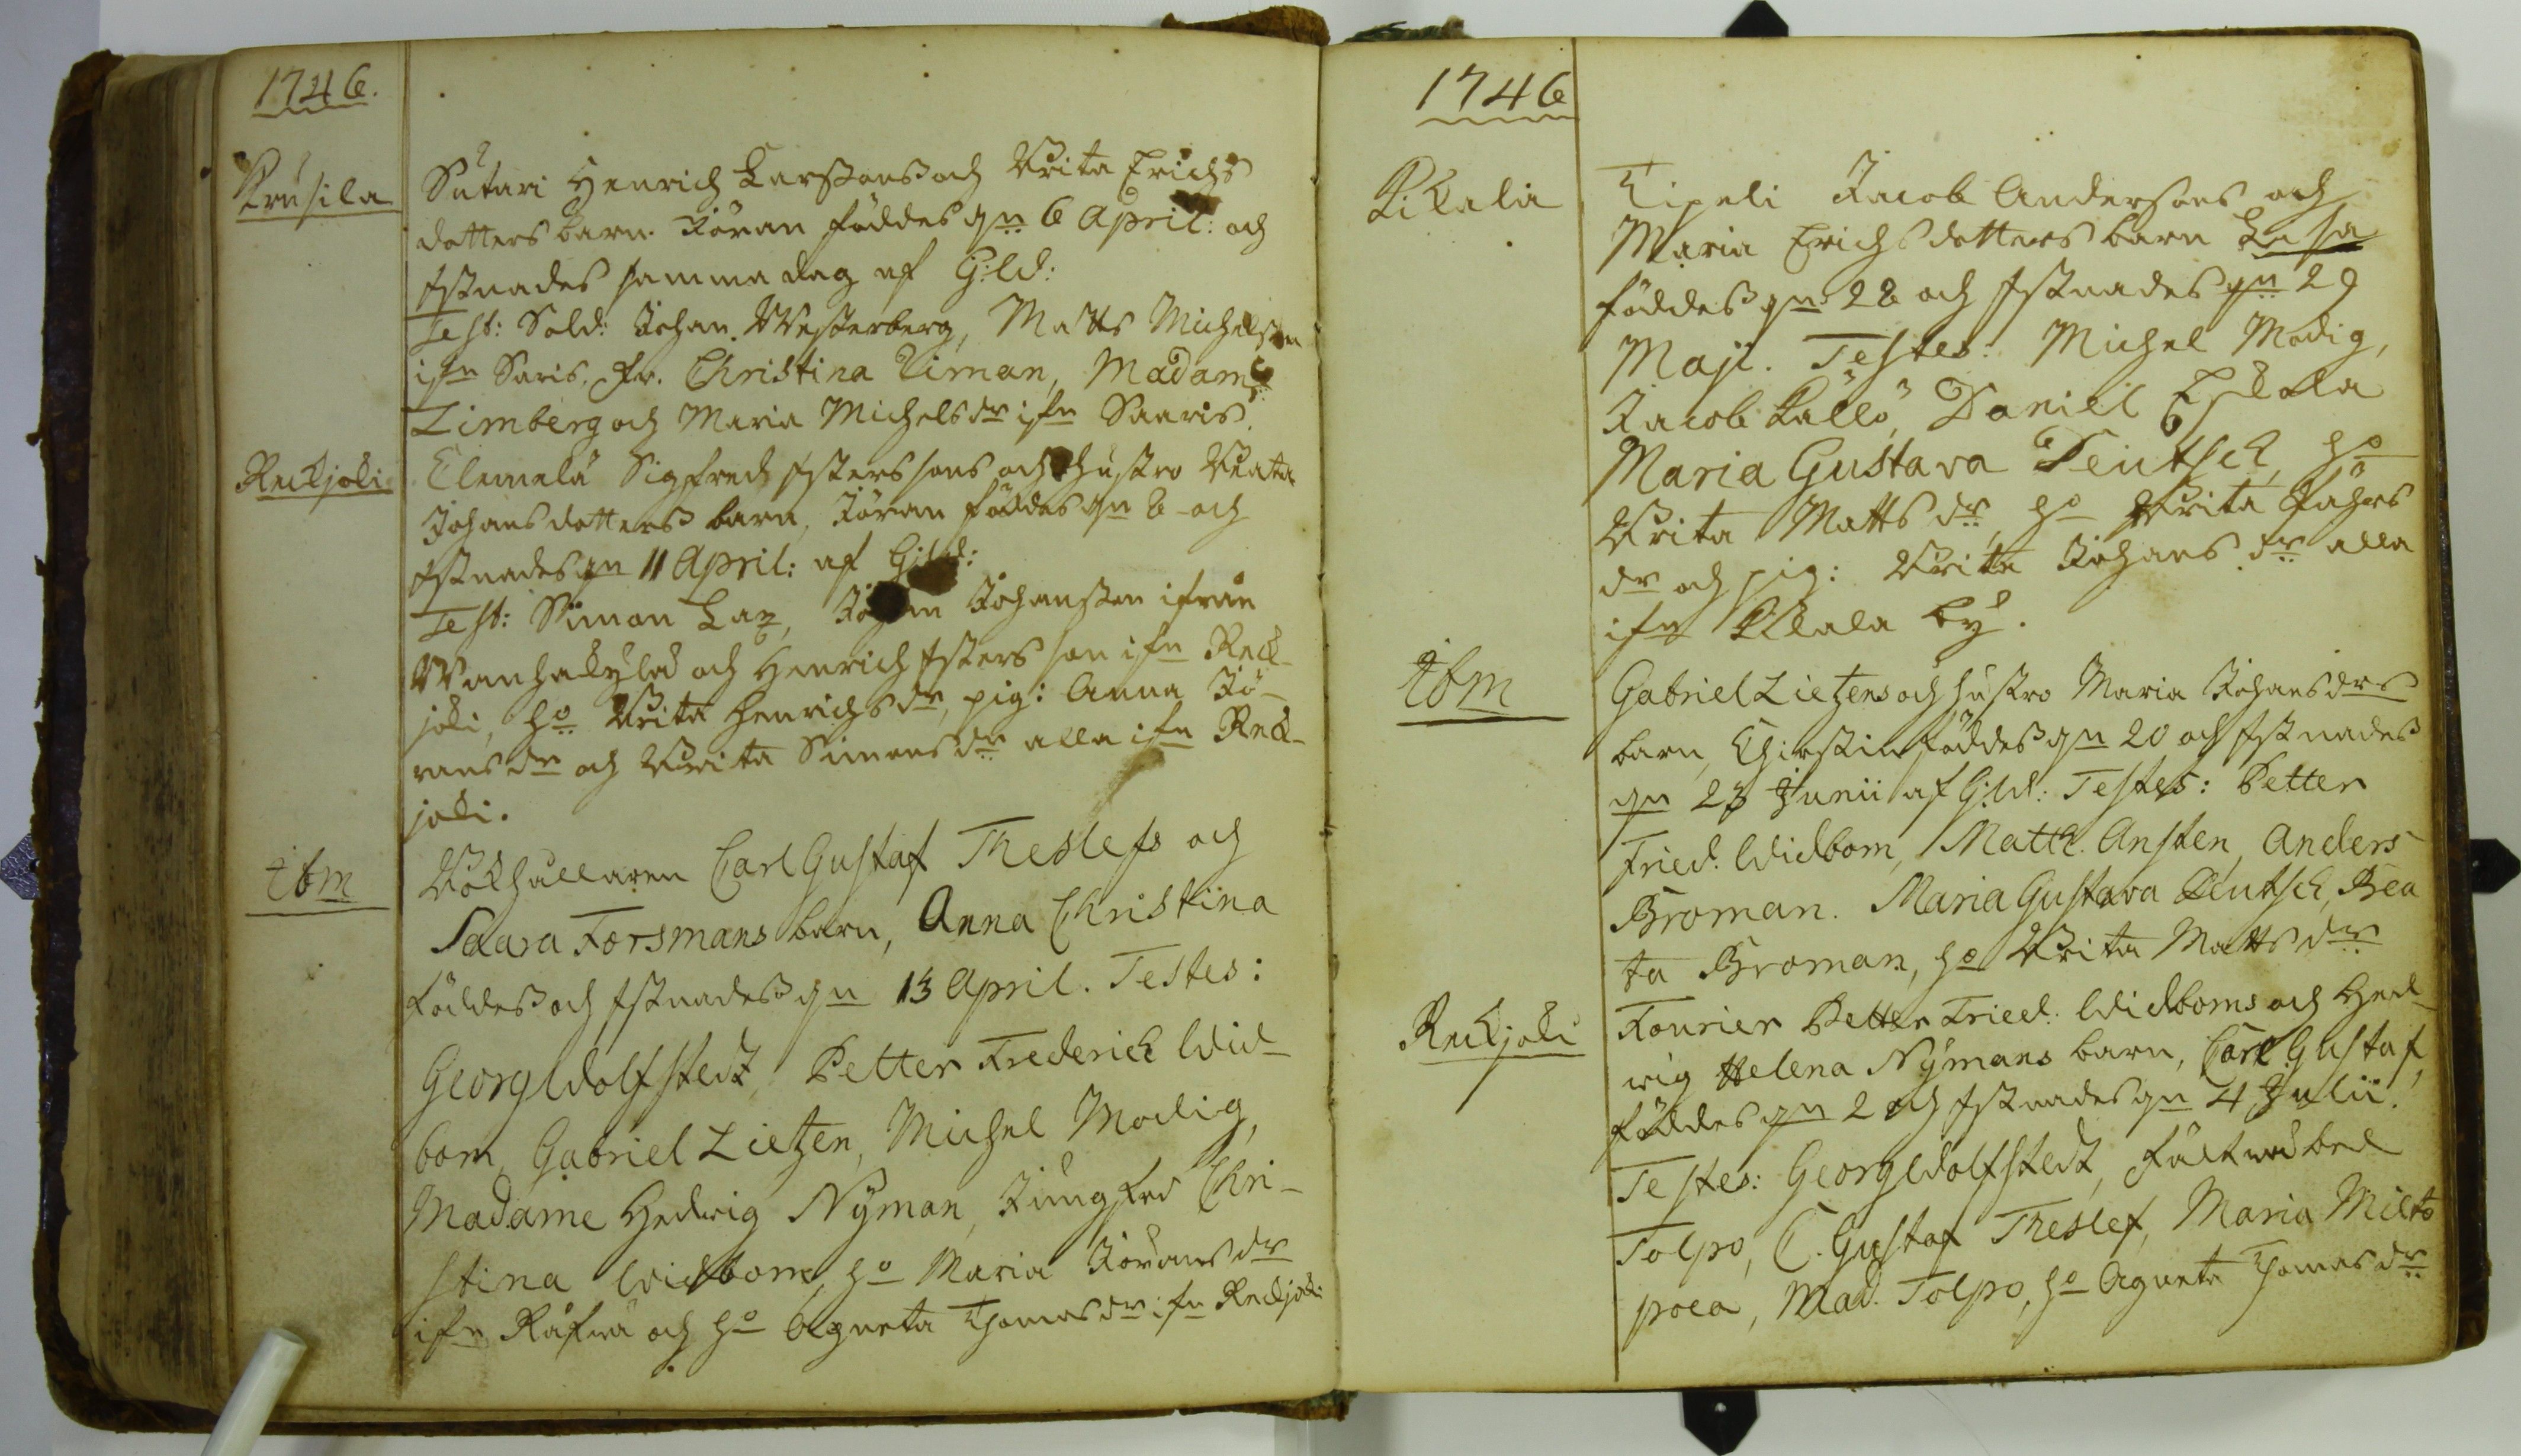 1746.
Krusila
Sutari Henrich Larssons och Brita Erichs
dotters barn. Jöran föddes d. 6 April: och
Xstnades samma dag af G:ld:
Test: Sold: Johan Westerberg, Matts Michelsson
ifn Saris. Fr. Christina Ziman, Madame
Limberg och Maria Michelsdr ifn Saaris.
Reckjoki
Clemelä Sigfred Xsters sons och hustro Beata
Johansdotters barn, Jöran föddes d. 8 och
Xstnades d. 11 April: af G:ld:
Test: Simon Lax, Johan Johansson ifrån
Wanhakylä och Henrich Xsters son ifn Reck-
joki, ho Brita Henrichsdr, pig: Anna Jö-
ransdr och Brita Simonsdr alla ifn Reck-
joki.
ibm
Bokhållaren Carl Gustaf Theslefs och
Saara Forsmans barn, Anna Christina
föddes och Xstnades d. 13 April. Testes:
Georg Wolfstedt, Petter Frederich Wid-
bom, Gabriel Lietzen, Michel Modig,
Madame Hedvig Nyman, Jungfru Chri-
stina Widbom, ho Maria Göransdr
ifn Räfvä och ho Agneta Thomasdr ifn Reckjoki
1746
Kikala
Kipeli Jacob Anderssons och
Maria Erichsdotters barn Lisa
föddes d. 28 och Xstnades d. 29
Maji. Testes: Michel Modig,
Jacob Kallo, Daniel Eskola
Maria Gustava Teutsch, ho
Brita Matts dr, ho Brita Påhls
dr och pig: Brita Johans dr alla
ifn Kikala by.
ibm
Gabriel Lietzens och hustro Maria Johansdrs
barn, Christin föddes d. 20 och Xstnades
d. 23 Junii af G:ld: Testes: Petter
Fried. Widbom, Matth. Ansten, Anders
Broman. Maria Gustava Teutsch, Bea
ta Broman, ho Brita Matts dr
Reckjoki
Fourier Petter Fried. Widboms och Hed-
wig Helena Nymans barn, Carl Gustaf,
föddes d. 2 och Xstnades d. 4 Julii.
Testes: Georg Wolfstedt, Fältwäbel
Tolpo, C. Gustaf Theslef, Maria Milto
poea, Mad. Tolpo, ho Agneta Thomas dr